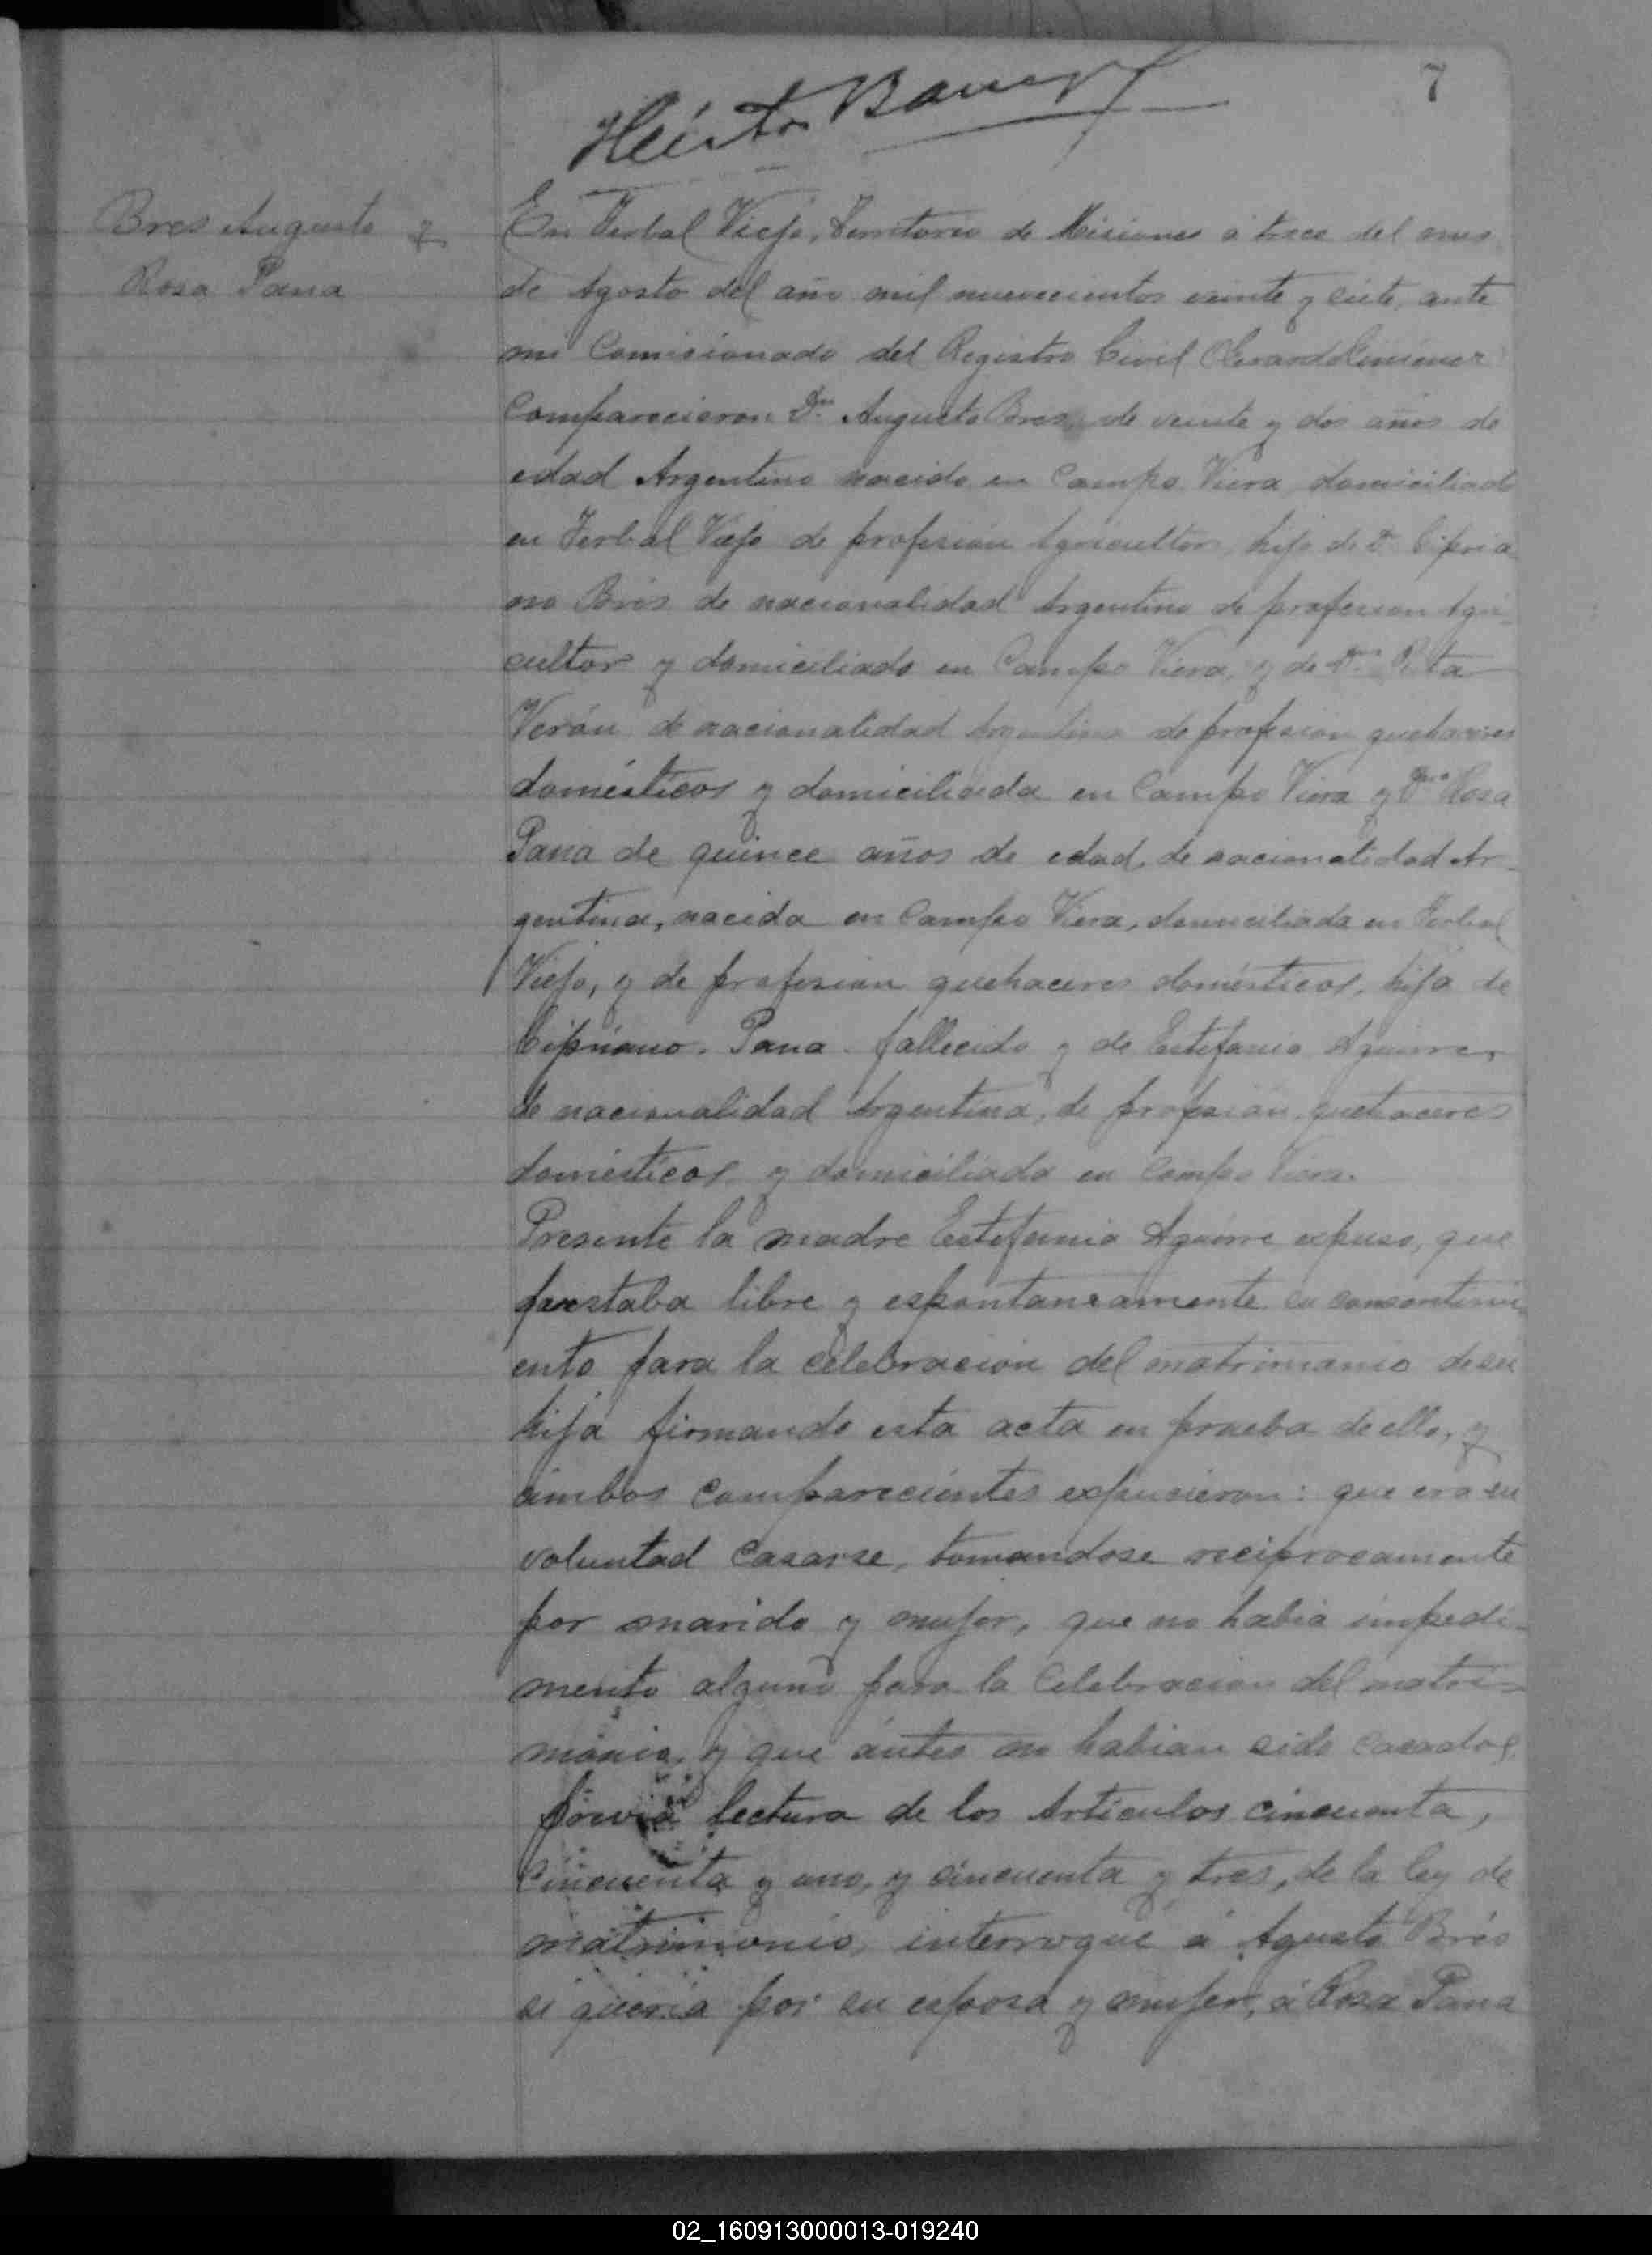 7
Héctor
Bres Augusto y
Rosa Pana
En Yerbal Viejo, Territorio de Misiones a trece del mes
de Agosto del año mil novecientos veinte y siete, ante
mi Comisionado del Registro Civil
Comparecieron Dn Augusto Bres, de veinte y dos años de
edad Argentino nacido en Campo Viera domiciliado
en Yerbal Viejo de profesión Agricultor, hijo de Dn Cipria
no Brés de nacionalidad Argentino de profesion Agri-
cultor y domiciliado en Campo Viera, y de Dña
Verón de nacionalidad Argentina de profesion quehaceres
domésticos y domiciliada en Campo Viera y Dña Rosa
Pana de quince años de edad, de nacionalidad Ar-
gentina, nacida en Campo Viera, domiciliada en Yerbal
Viejo, y de profesión quehaceres domésticos, hija de
Cipriano Pana fallecido y de Estefania Aguirre,
de nacionalidad Argentina, de profesión quehaceres
domésticos y domiciliada en Campo Viera.
Presente la madre Estefania Aguirre expuso, que
prestaba libre y espontaneamente su consentimi
ento para la celebración del matrimonio de su
hija firmando esta acta en prueba de ello, y
ámbos comparecientes expusieron: que era su
voluntad casarse, tomandose reciprocamente
por marido y mujer, que no habia impedi-
mento alguno para la Celebracion del matri-
monio, y que ántes no habian sido casados,
prévia lectura de los Artículos cincuenta,
Cincuenta y uno, y cincuenta y tres, de la ley de
matrimonio, interrogué a Agusto Brés
si queria por su esposa y mujer, á Rosa Pana
02_160913000013-019240